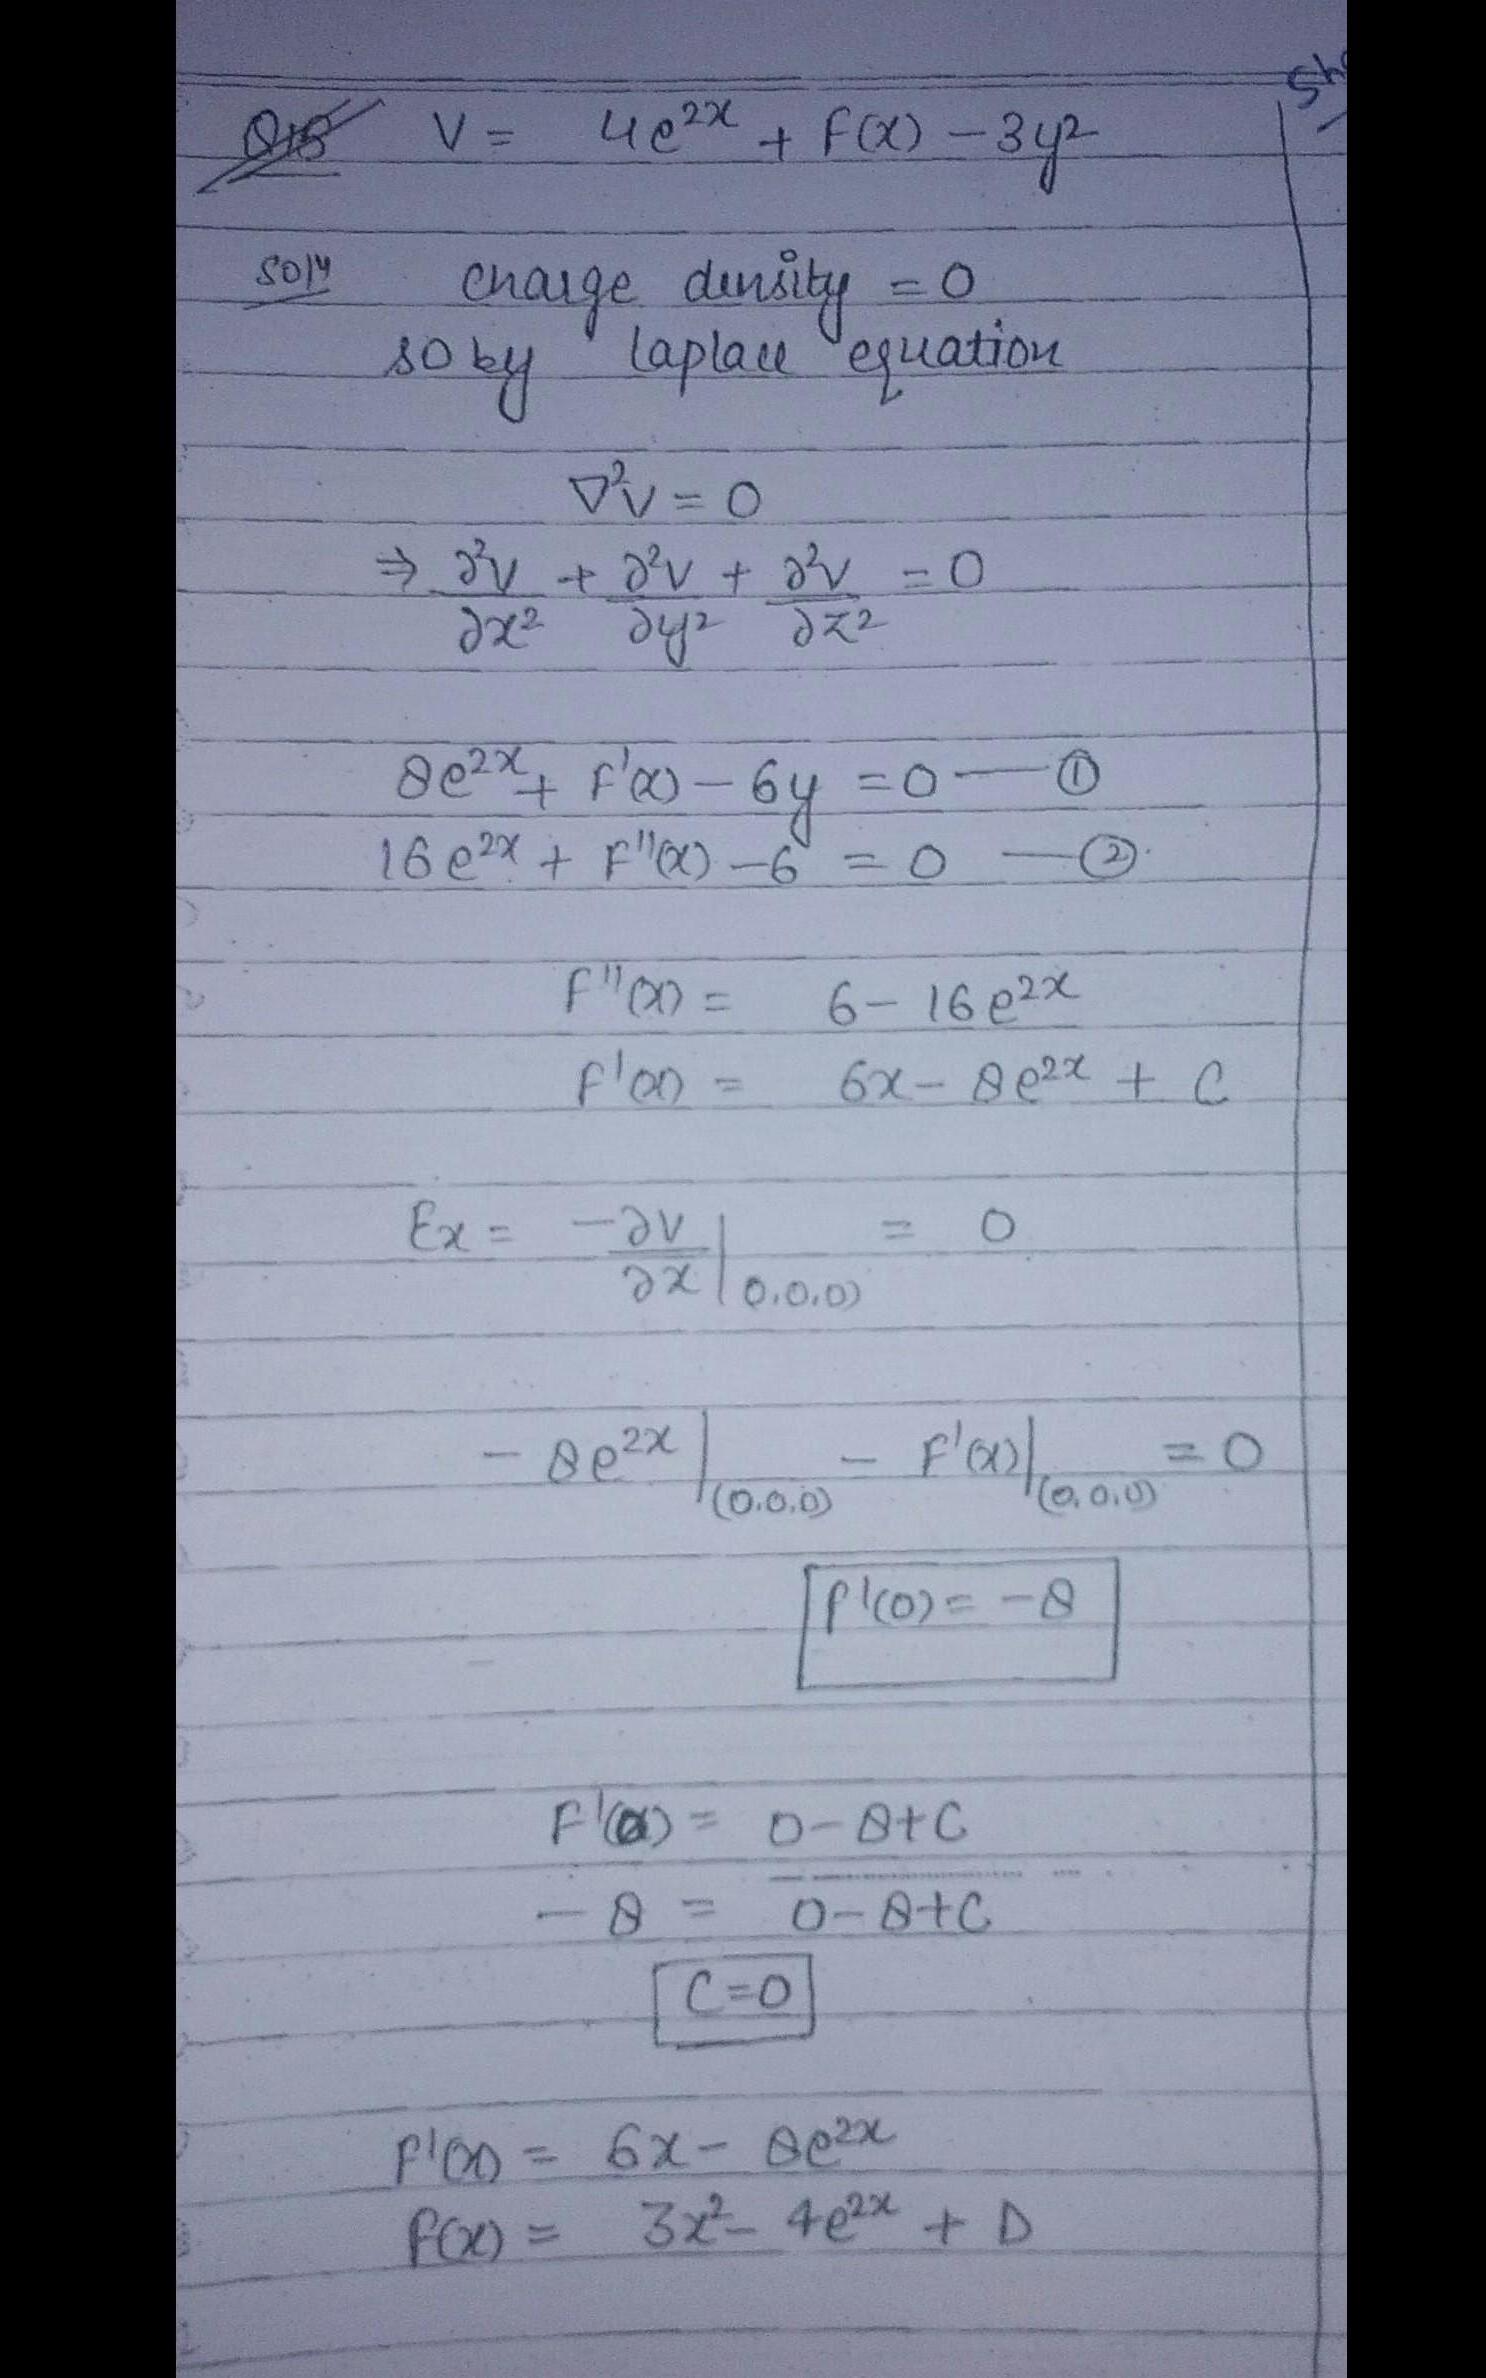 Q18 V = 4e²ˣ + F(x) - 3y²
Sol4 charge density = 0
so by laplace equation
∇²V = 0
⇒ ∂²V/∂x² + ∂²V/∂y² + ∂²V/∂z² = 0
8e²ˣ + F'(x) - 6y = 0 — ①
16e²ˣ + F''(x) - 6 = 0 — ②
F''(x) = 6 - 16e²ˣ
F'(x) = 6x - 8e²ˣ + C
Ex = -∂V/∂x |0,0,0) = 0
- 8e²ˣ |(0,0,0) - F'(x)|(0,0,0) = 0
F'(0) = -8
F'(0) = 0 - 8 + C
- 8 = 0 - 8 + C
C = 0
F'(x) = 6x - 8e²ˣ
F(x) = 3x² - 4e²ˣ + D